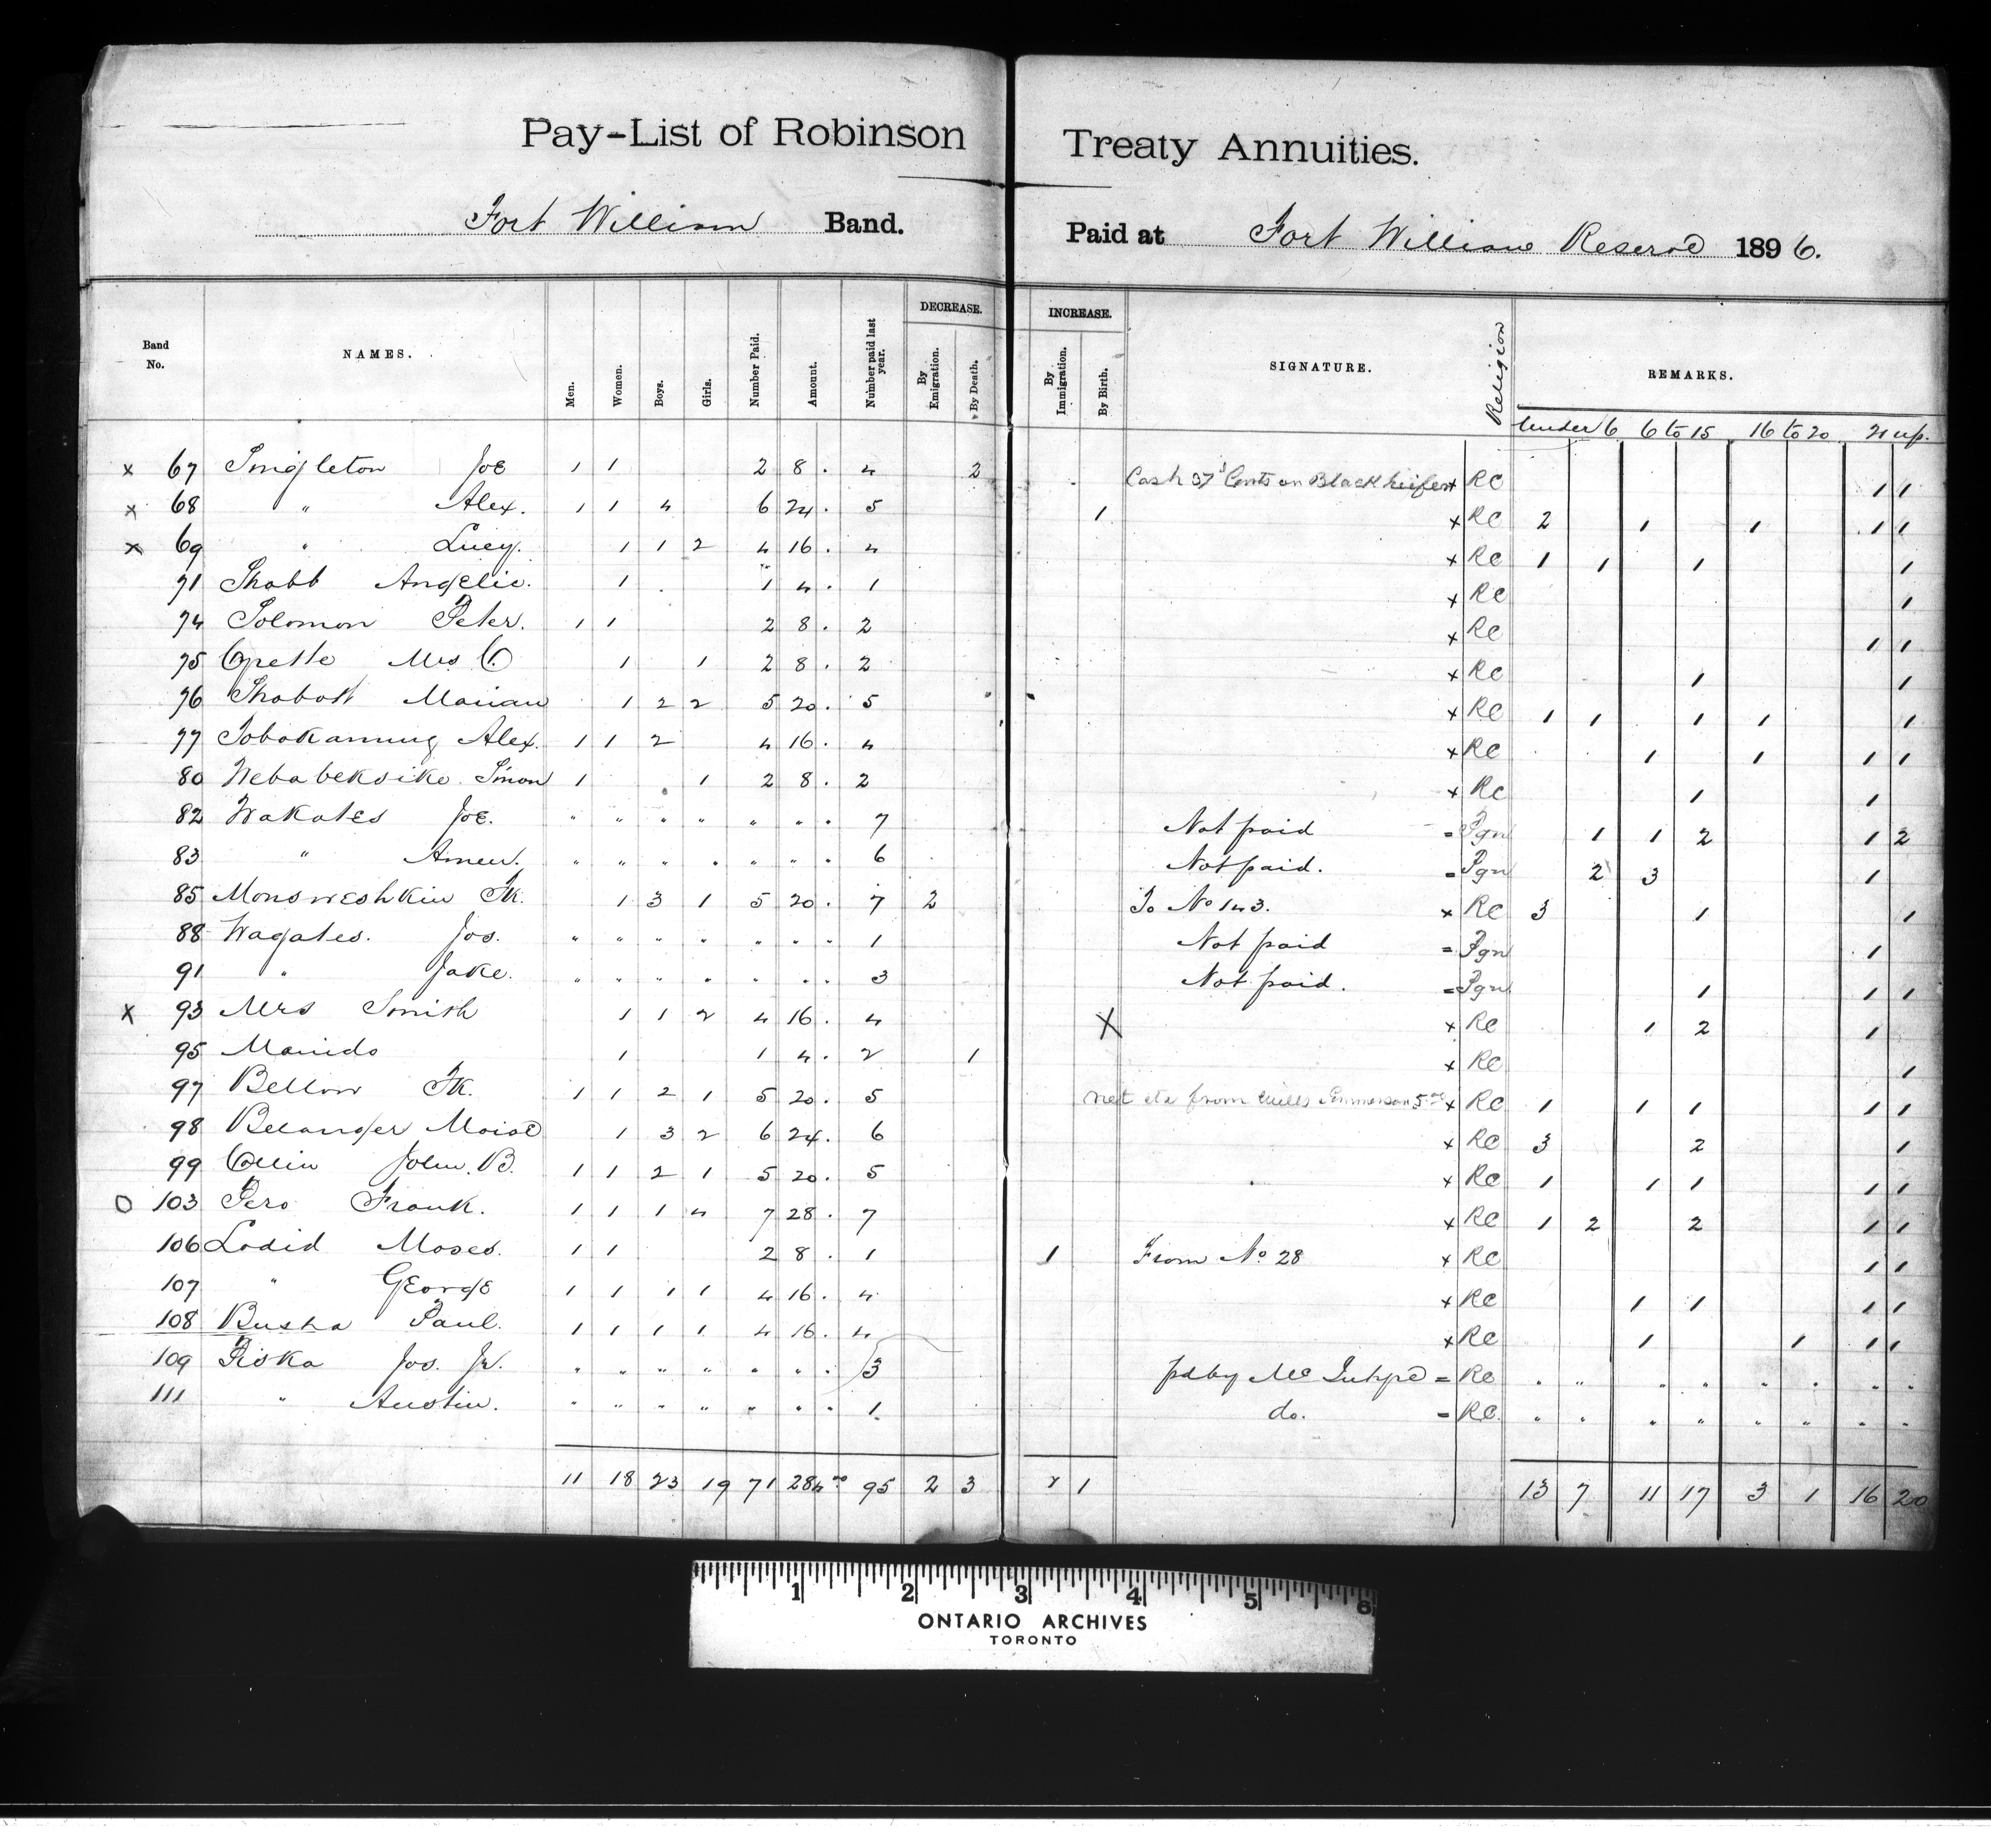 Pay-List of Robinson Treaty Annuities.
Fort William Band. Paid at Fort William Reserve 1896.
Band No. NAMES. Men. Women. Boys. Girls. Number Paid. Amount. Number paid last year. DECREASE. By Emigration. By Death. INCREASE. By Immigration. By Birth. SIGNATURE. Religion REMARKS.
Under 6 6 to 15 16 to 20 21 up.
x 67 Singleton Joe 1 1 2 8 . 4 2 Cash 37 Cents on Black heifer x RC 1 1
x 68 " Alex. 1 1 4 6 24 . 5 1 x RC 2 1 1 1 1
x 69 " Lucy. 1 1 2 4 16 . 4 x RC 1 1 1 1
71 Shabb Angelic. 1 1 4 . 1 x RC 1
74 Solomon Peter. 1 1 2 8 . 2 x RC 1 1
75 Mrs C 1 1 2 8 . 2 x RC 1 1
76 Marian 1 2 2 5 20 . 5 x RC 1 1 1 1 1
77 Alex. 1 1 2 4 16 . 4 x RC 1 1 1 1
80 Simon 1 1 2 8 . 2 x RC 1 1
82 Wakates Joe. " " " " " " . 7 Not paid = Pgn 1 1 2 1 2
83 " " " " . " " . 6 Not paid. = Pgn 2 3 1
85 Monsweshkin Fk. 1 3 1 5 20 . 7 2 To No 143. x RC 3 1 1
88 Wagates. Jos. " " " " " " " 1 Not paid = Pgn 1
91 " Jake. " " " " " " " 3 Not paid. = Pgn 1 1 1
x 93 Mrs Smith 1 1 2 4 16 . 4 X x RC 1 2 1
95 Manido 1 1 4 . 2 1 x RC 1
97 Bellow Fk. 1 1 2 1 5 20 . 5 from 5.00 x RC 1 1 1 1 1
98 Belanger Moise 1 3 2 6 24 . 6 x RC 3 2 1
99 Collin John. B. 1 1 2 1 5 20 . 5 x RC 1 1 1 1 1
O 103 Pero Frank. 1 1 1 4 7 28 . 7 x RC 1 2 2 1 1
106 Ladid Moses. 1 1 2 8 . 1 1 From No 28 x RC 1 1
107 " George 1 1 1 1 4 16 . 4 x RC 1 1 1 1
108 Busha Paul. 1 1 1 1 4 16 . 4 x RC 1 1 1 1
109 Piska Jos. Jr. " " " " " " . 3 pd by Mc = RC " " " " " " " "
111 " Austin. " " " " " " . 1. do. = RC. " " " " " " " "
11 18 23 19 71 284.00 95 2 3 1 13 7 11 17 3 1 16 20
1 2 3 4 5 6
ONTARIO ARCHIVES
TORONTO